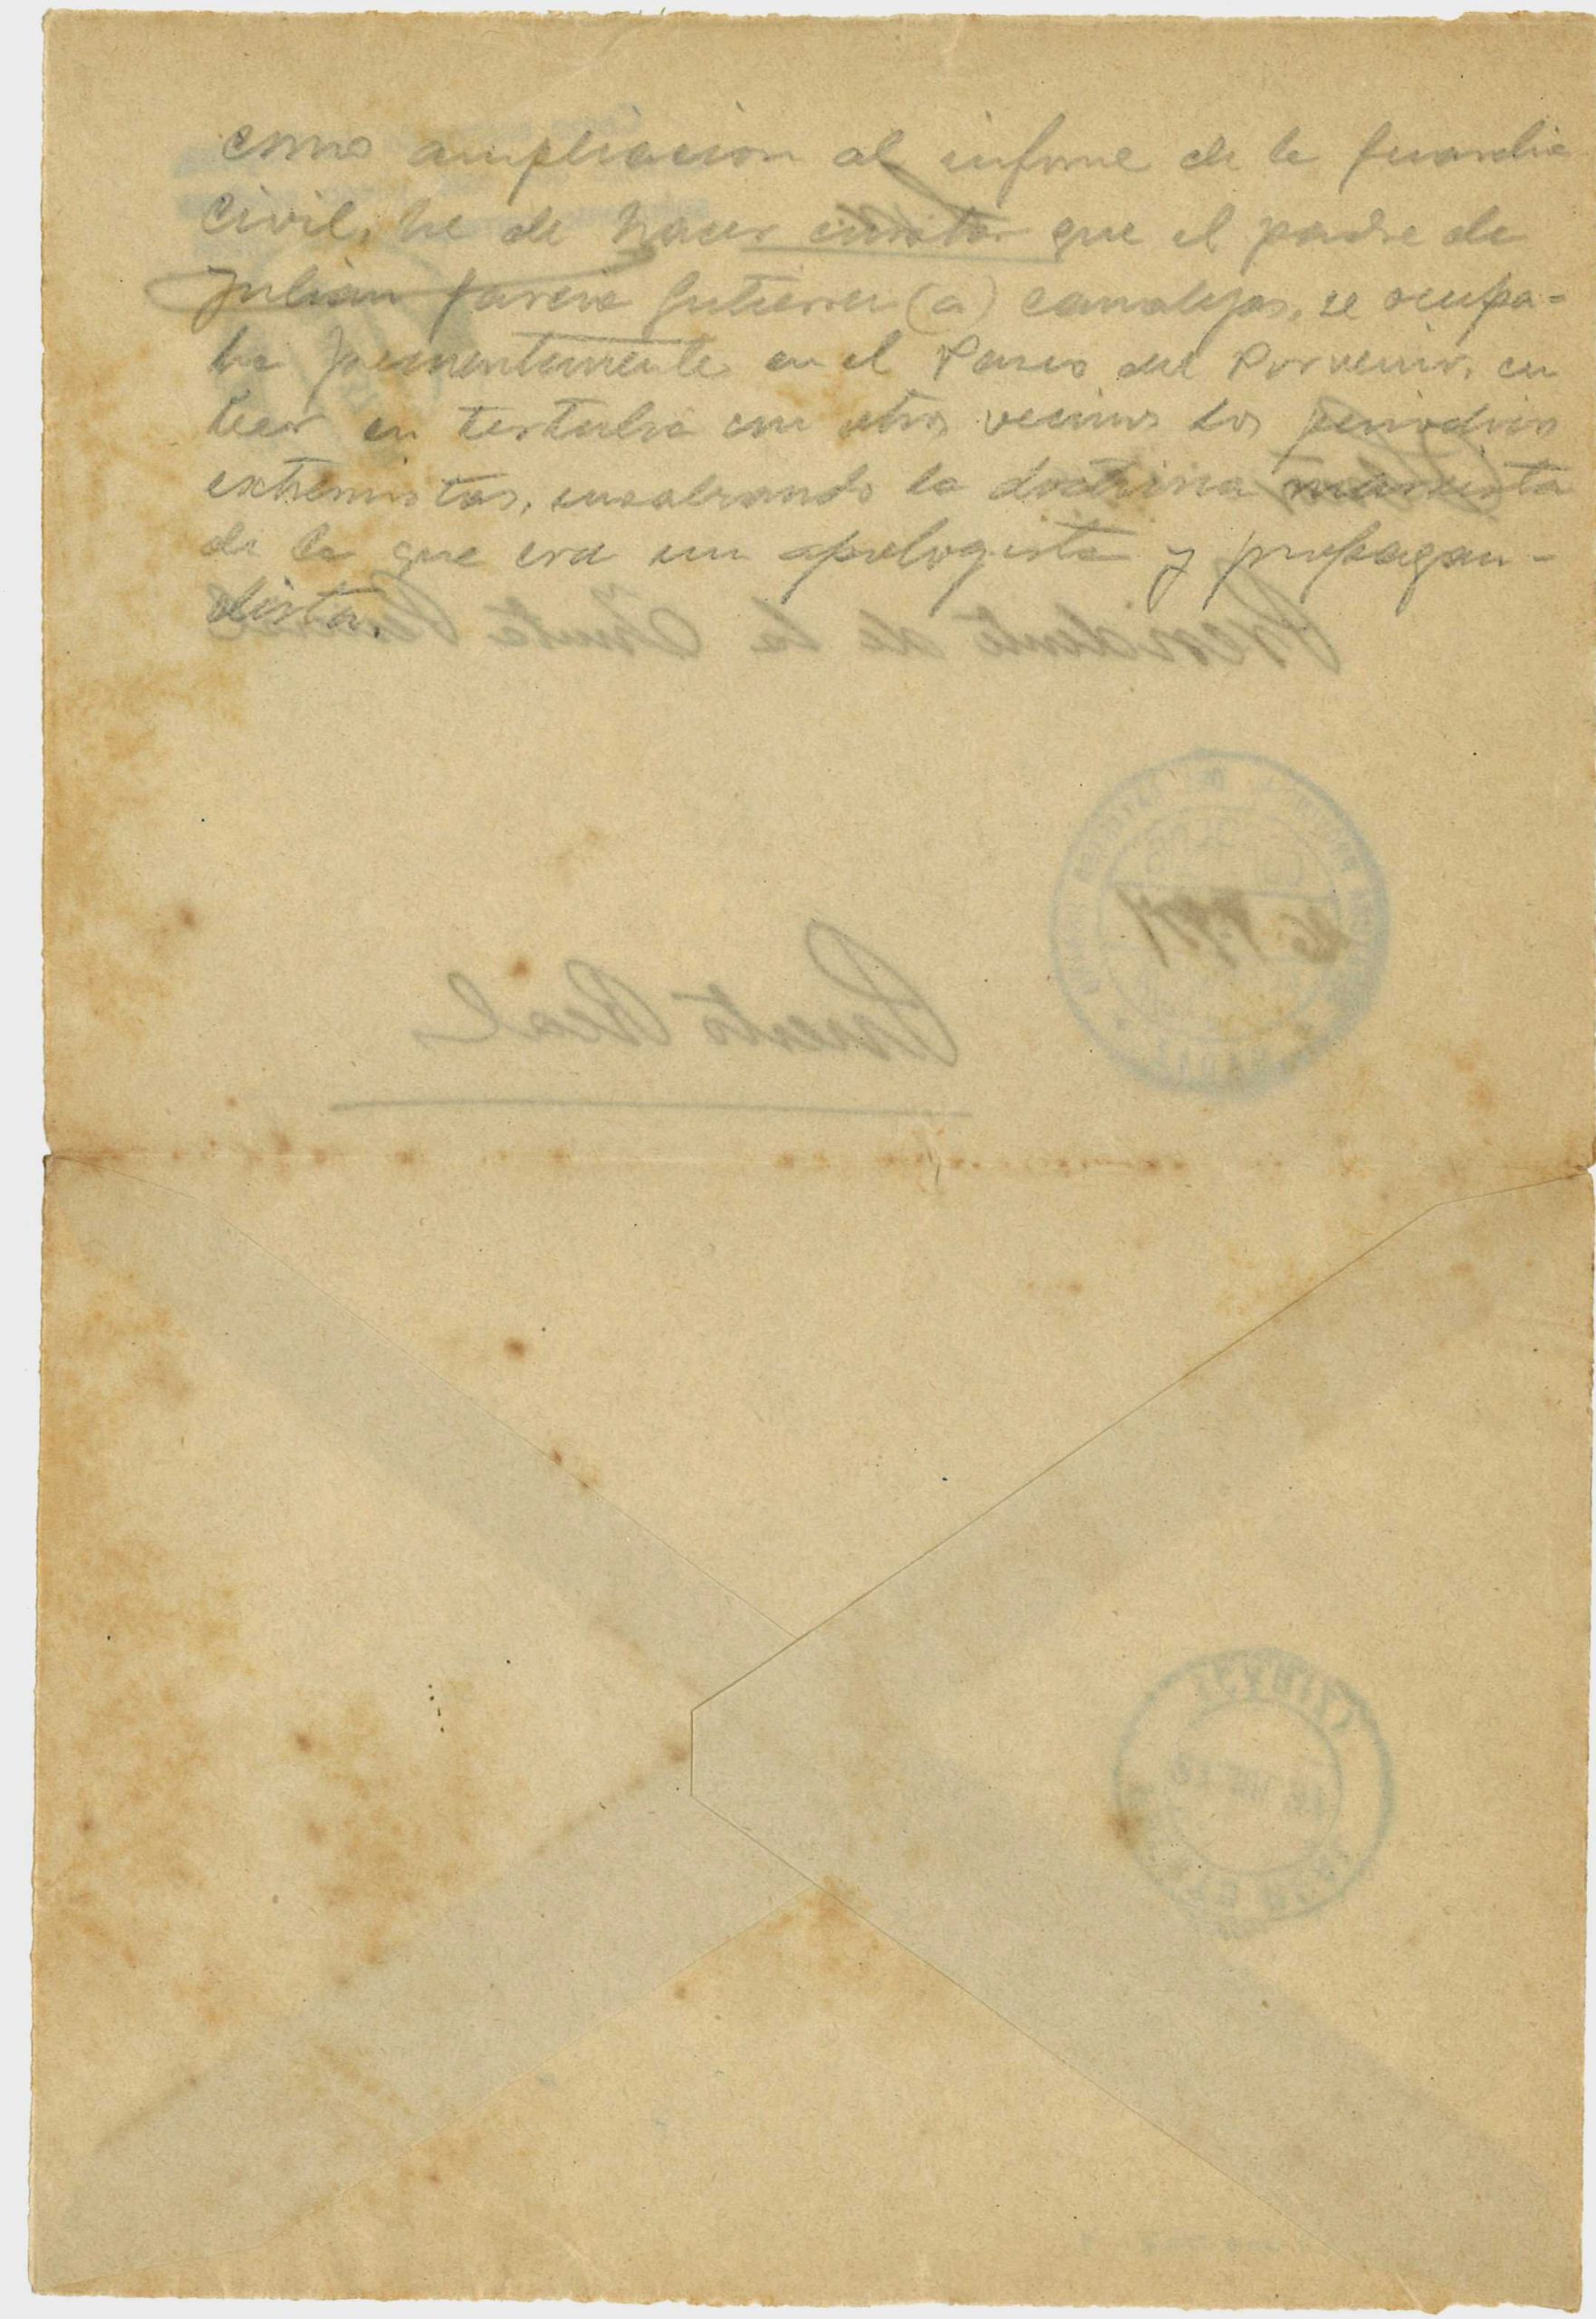 como ampliacion al informe de la guardia
civil, he de hacer constar que el padre de
Julian Garcia Gutierrez (a) canalejas, se ocupa=
ba permanentemente en el Paseo del Porvenir, en
leer en tertulia con otros vecinos los periodicos
extremistas, ensalzando la doctrina marxista
de la que era un apologista y propagan-
dista.
Presidente de la Junta
Puerto Real
CADIZ